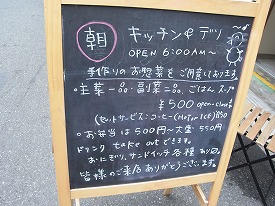 朝 キッチン&デリ
OPEN 6:00AM〜
手作りのお惣菜をご用意しております。
・主菜一品・副菜二品・ごはん・スープ
¥500
(セットサービス:コーヒー(HOT or ICE) ¥150
・お弁当は500円〜大盛550円
ドリンク take out できます。
おにぎり、サンドイッチ各種あり〼。
皆様のご来店ありがとうございます。